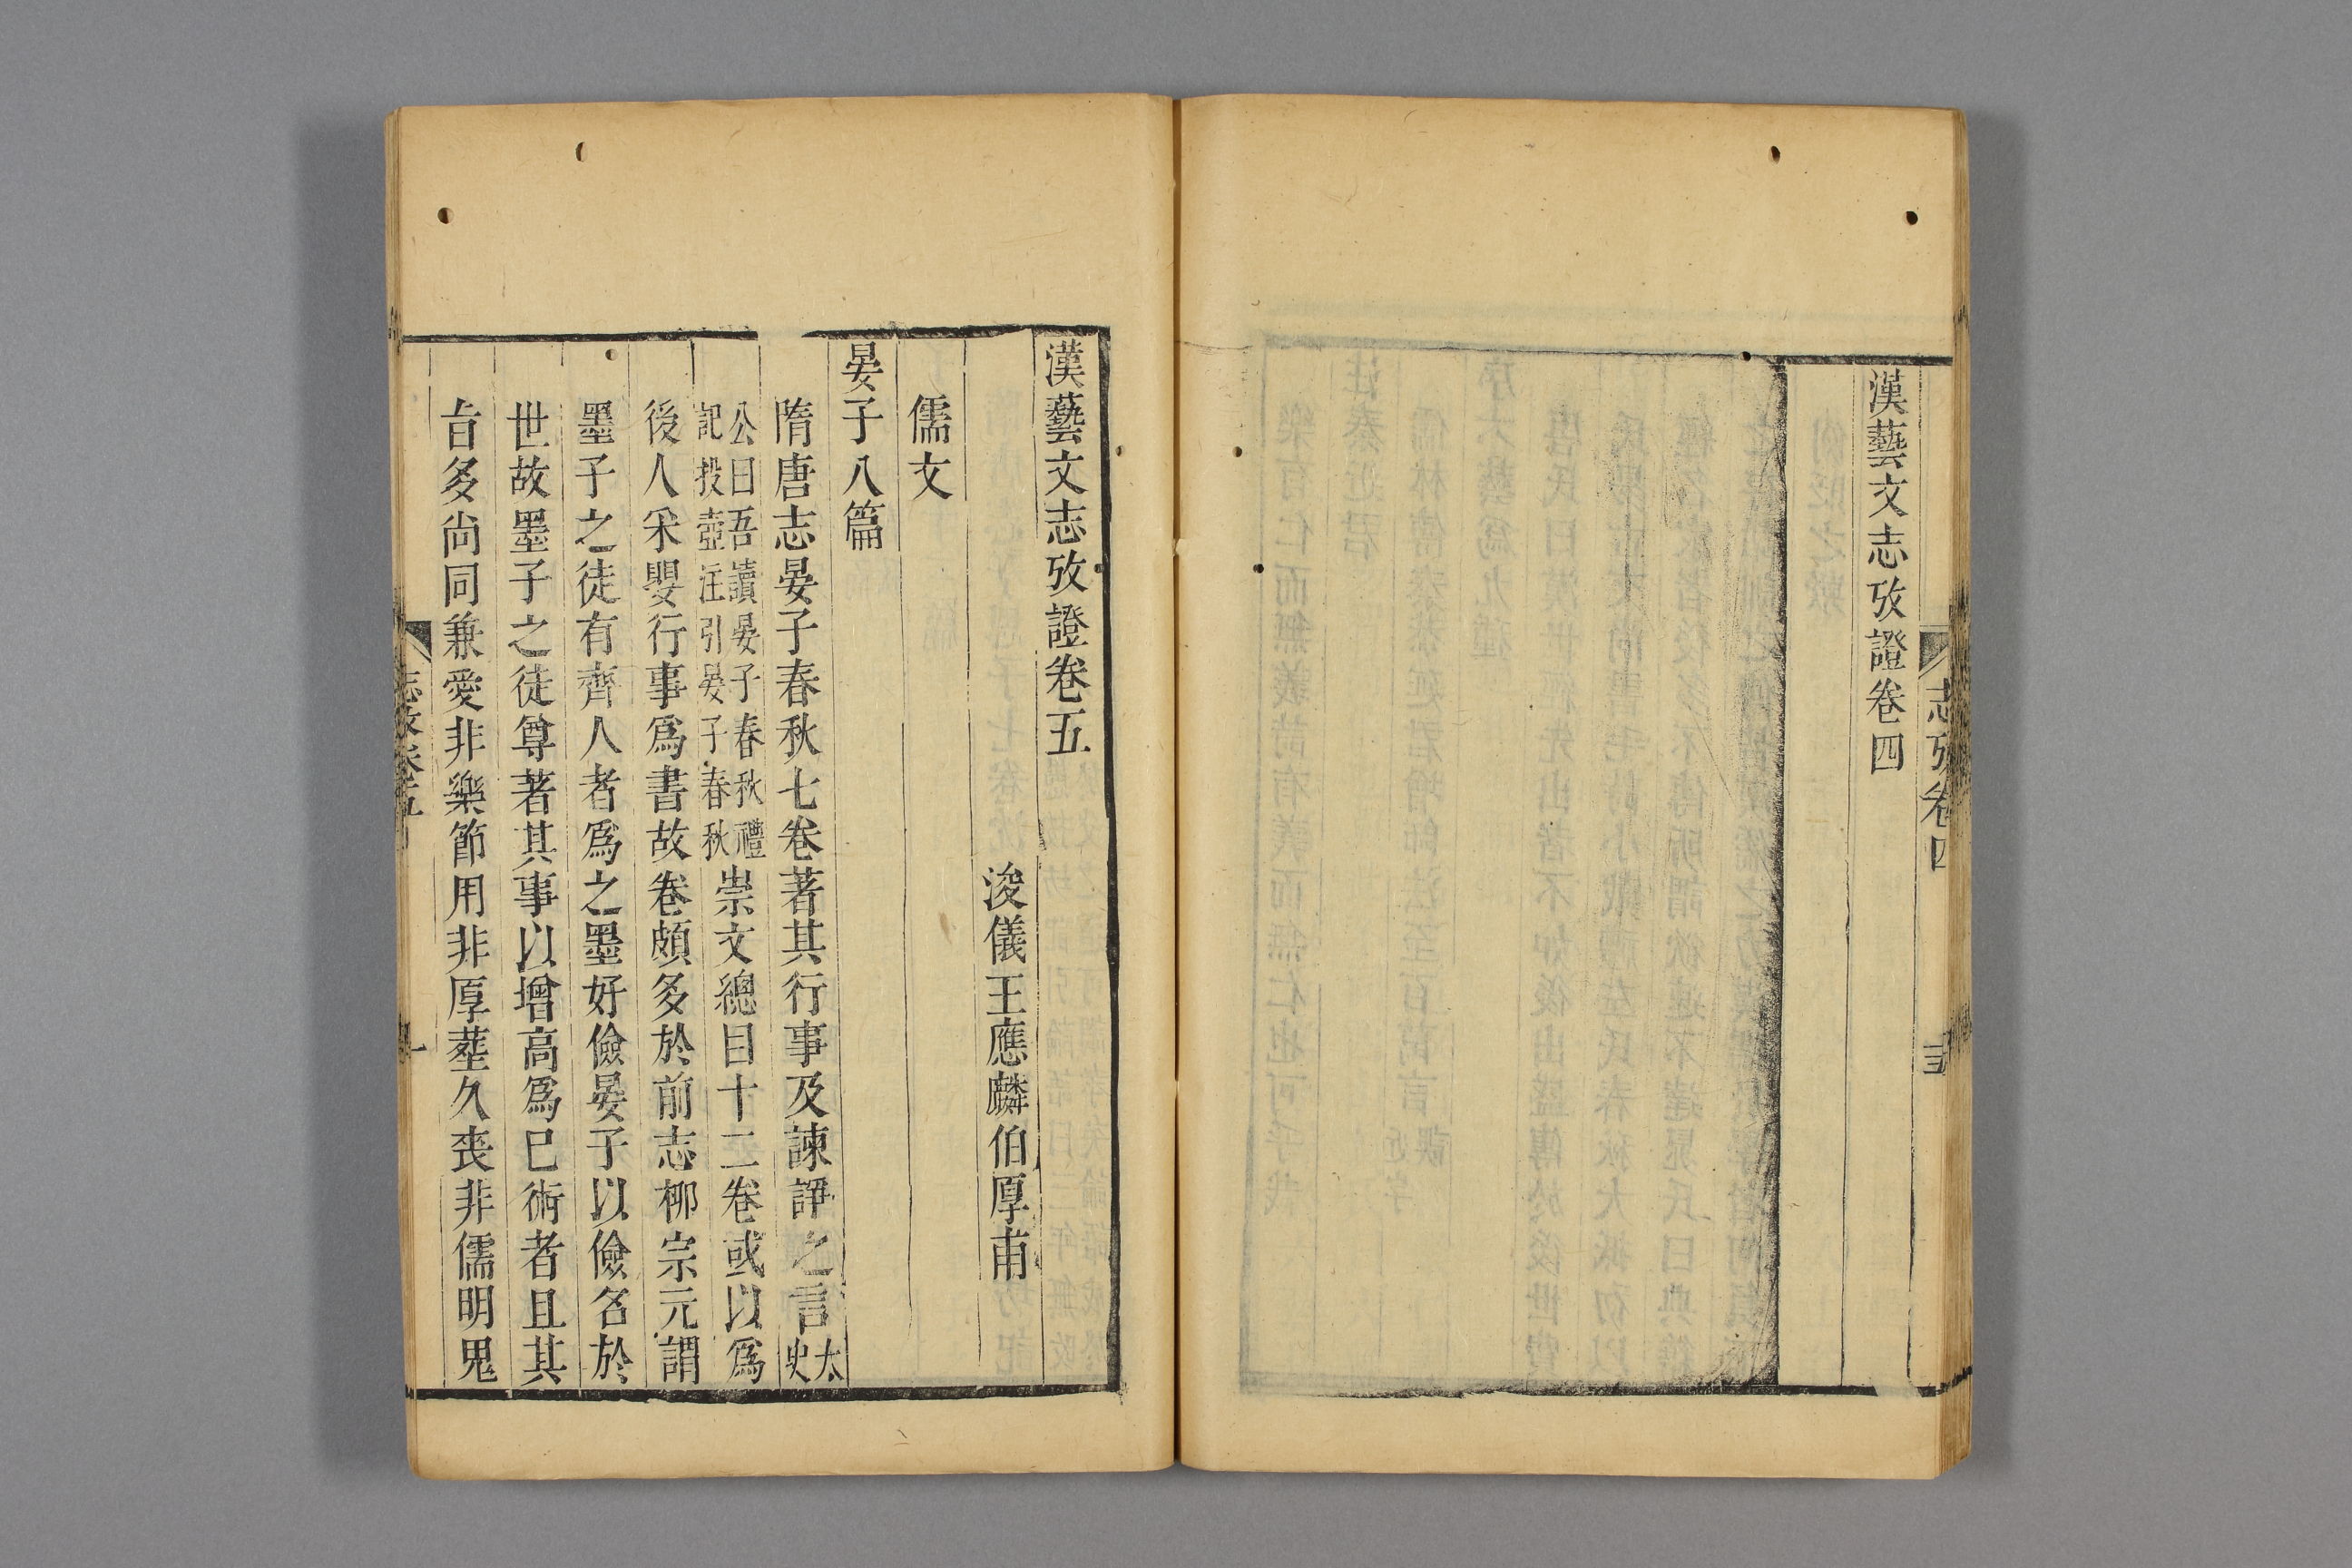 志攷卷四
漢藝文志攷證卷四
漢藝文志攷證卷五
浚儀王應麟伯厚甫
儒文
晏子八篇
隋唐志晏子春秋七卷著其行事及諫諍之言太
史
公曰吾讀晏子春秋禮
記投壺注引晏子春秋
崇文總目十二卷或以爲
後人采嬰行事爲書故卷頗多於前志栁宗元謂
墨子之徒有齊人者爲之墨好儉晏子以儉名於
世故墨子之徒尊著其事以增高爲巳術者且其
㫖多尚同兼愛非樂節用非厚塟久䘮非儒明鬼
志攷卷五
一